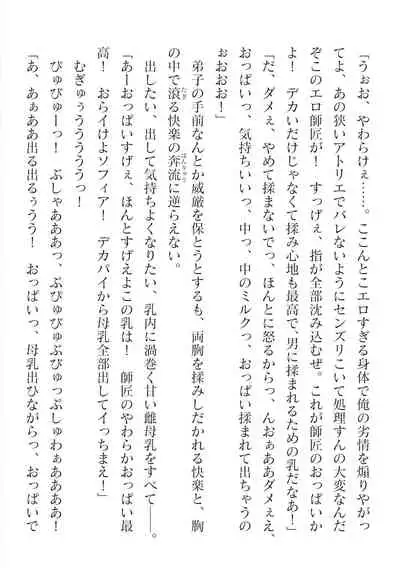 「うぉお、やわらけぇ……。ここんとこエロすぎる身体で俺の劣情を煽りやがっ
てよ、あの狭いアトリエでバレないようにセンズリこいて処理すんの大変なんだ
ぞこのエロ師匠が！　すっげぇ、指が全部沈み込むぜ。これが師匠のおっぱいか
よ！　デカいだけじゃなくて揉み心地も最高で、男に揉まれるための乳だなあ！」
「だ、ダメぇ、やめて揉まないでっ、ほんとに怒るからっ、んおぉああダメぇえ、
おっぱいっ、気持ちいいっ、中っ、中のミルクっ、おっぱい揉まれて出ちゃうの
ぉおおお！」
弟子の手前なんとか威厳を保とうとするも、両胸を揉みしだかれる快楽と、胸
の中で滾る快楽の奔流に逆らえない。
出したい、出して気持ちよくなりたい、乳内に渦巻く甘い雌母乳をすべて――。
「あーおっぱいすげぇ、ほんとすげえよこの乳は！　師匠のやわらかおっぱい最
高！　おらイけよソフィア！　デカパイから母乳全部出してイっちまえ！」
むぎゅぅうううううっ！
ぴゅぴゅーっ！　ぶしゃあああっ、ぶぴゅびゅぶぴゅっっぷしゅわぁああああ！
「あ、あぁああ出る出るぅうう！　おっぱいっ、母乳出ひながらっ、おっぱいで